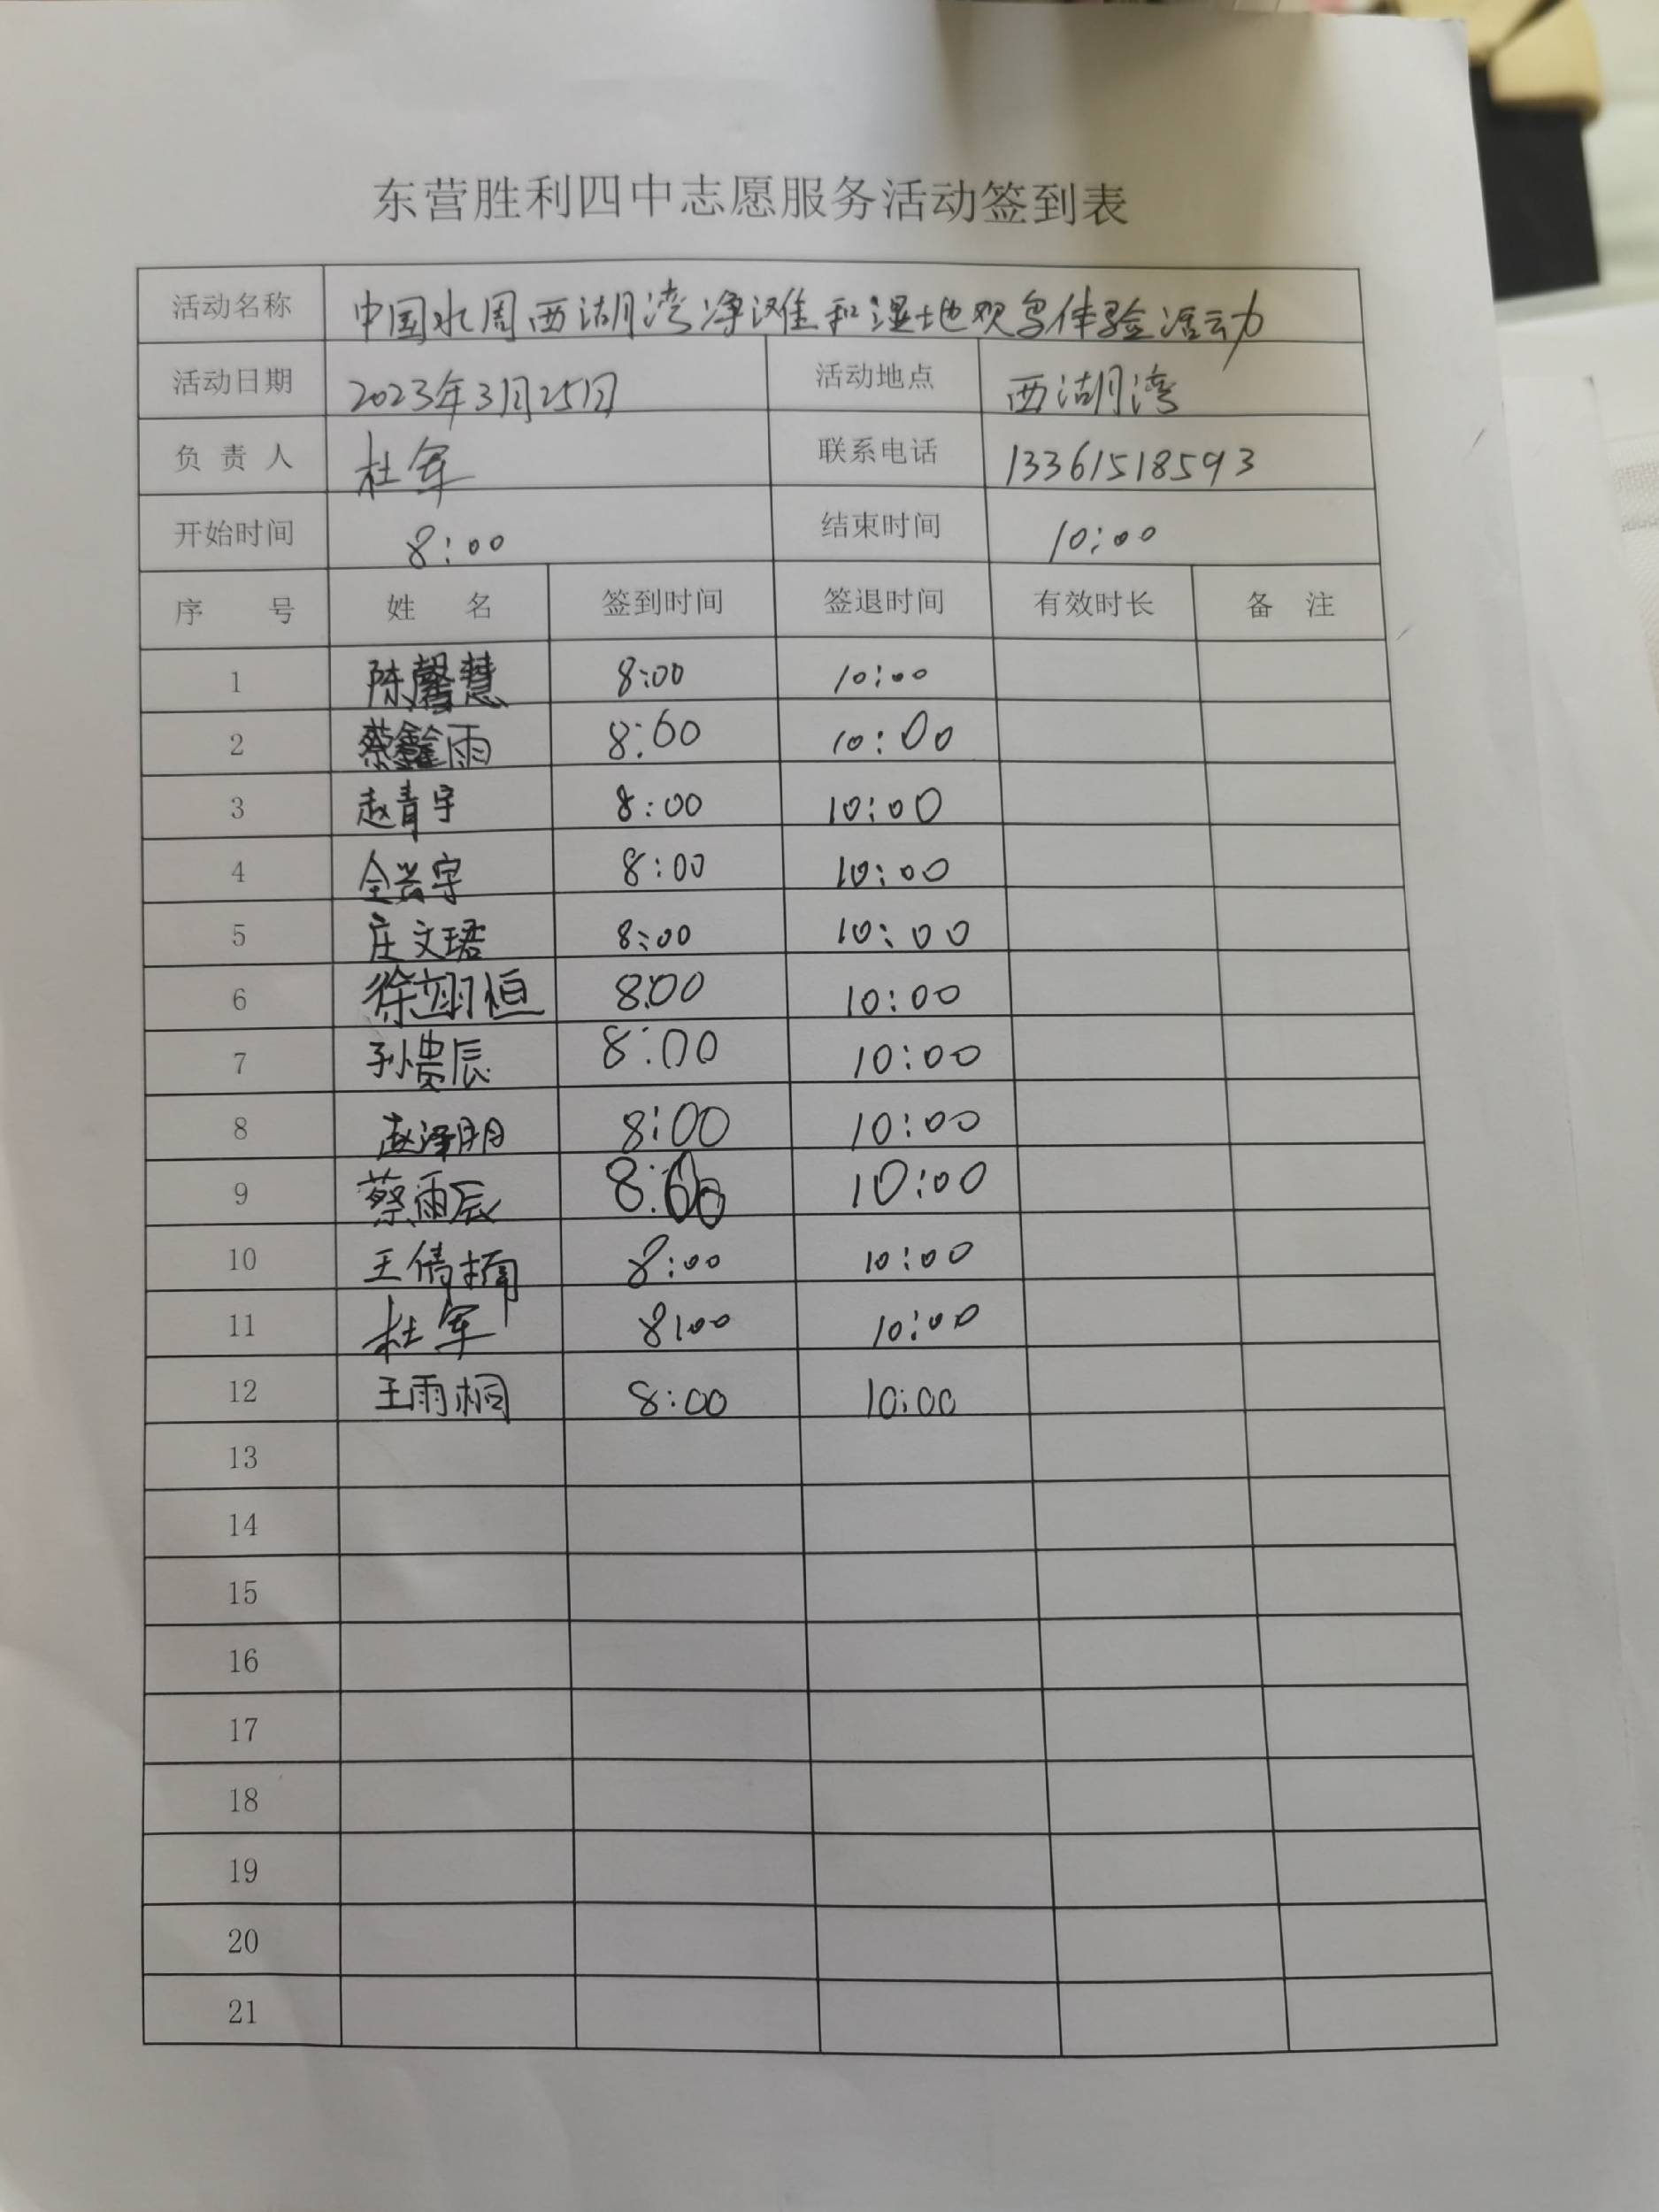 东营胜利四中志愿服务活动签到表
活动名称 中国水周西湖湾净滩和湿地观鸟体验活动
活动日期 2023年3月25日 活动地点 西湖湾
负责人 杜军 联系电话 13361518593
开始时间 8:00 结束时间 10:00
序号 姓名 签到时间 签退时间 有效时长 备注
1 陈馨慧 8:00 10:00
2 蔡鑫雨 8:00 10:00
3 赵青宇 8:00 10:00
4 仝兴宇 8:00 10:00
5 庄文珺 8:00 10:00
6 徐翊恒 8:00 10:00
7 孙贵辰 8:00 10:00
8 赵泽明 8:00 10:00
9 蔡雨辰 8:00 10:00
10 王倩楠 8:00 10:00
11 杜军 8:00 10:00
12 王雨桐 8:00 10:00
13
14
15
16
17
18
19
20
21